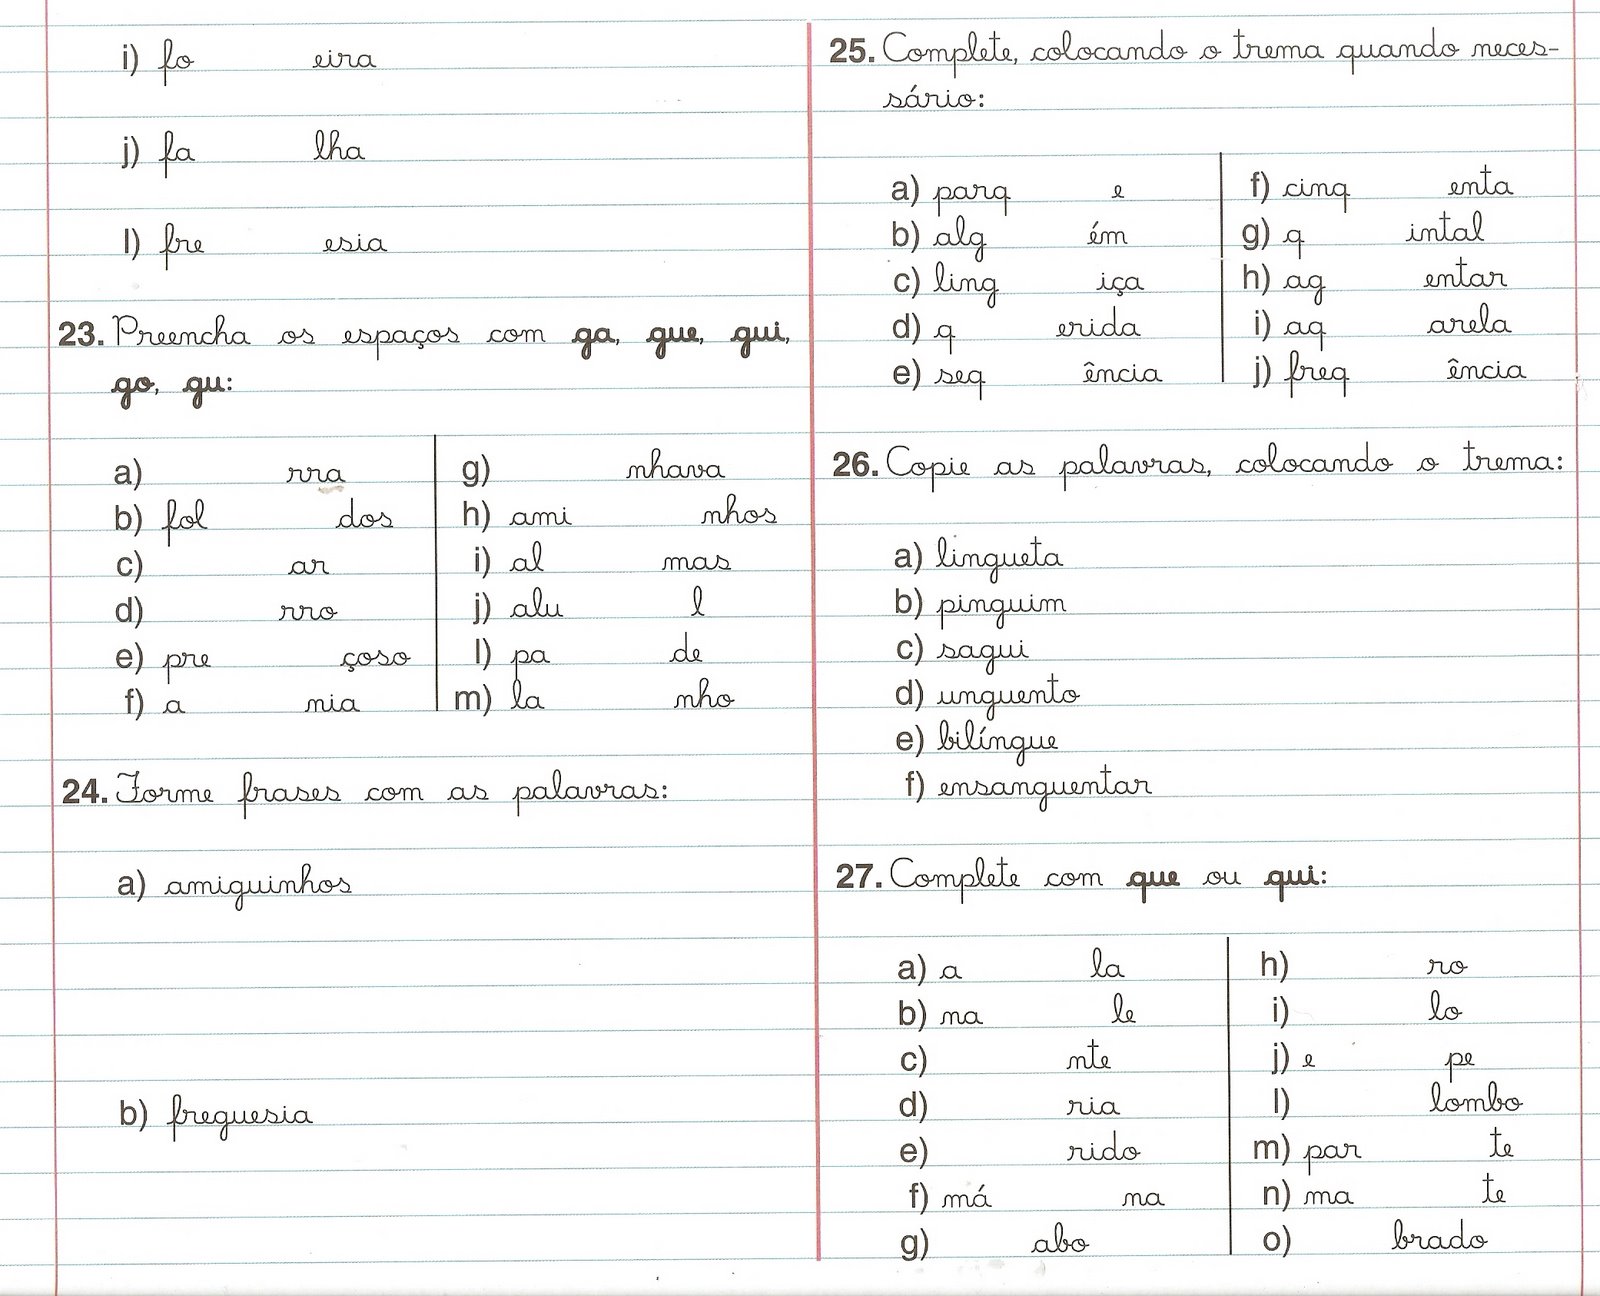 i) fo eira
j) fa lha
l) fre esia
23. Preencha os espaços com ga, gue, gui,
go, gu:
a) rra
b) fol dos
c) ar
d) rro
e) pre çoso
f) a nia
g) nhava
h) ami nhos
i) al mas
j) alu l
l) pa de
m) la nho
24. Forme frases com as palavras:
a) amiguinhos
b) freguesia
25. Complete, colocando o trema quando neces-
sário:
a) parq e
b) alg ém
c) ling iça
d) q erida
e) seq ência
f) cinq enta
g) q intal
h) ag entar
i) aq arela
j) freq ência
26. Copie as palavras, colocando o trema:
a) lingueta
b) pinguim
c) sagui
d) unguento
e) bilíngue
f) ensanguentar
27. Complete com que ou qui:
a) a la
b) na le
c) nte
d) ria
e) rido
f) má na
g) abo
h) ro
i) lo
j) e pe
l) lombo
m) par te
n) ma te
o) brado